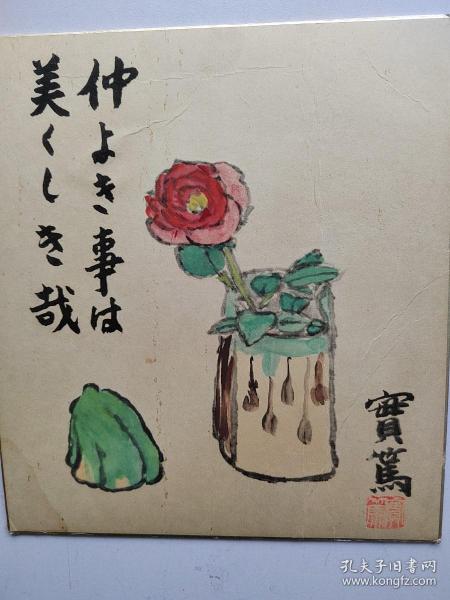 仲よき事は
美くしき哉
實篤
孔夫子旧书网
www.kongfz.com